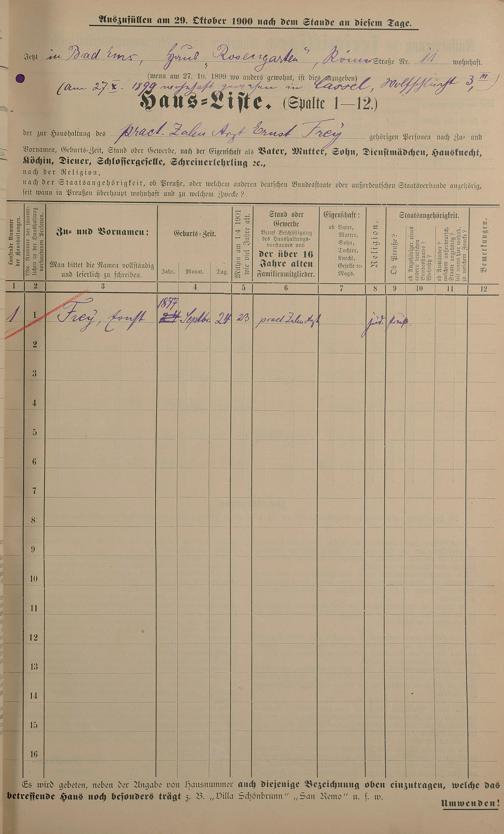 Auszufüllen am 29. Oktober 1900 nach dem Stande an diesem Tage.
Jetzt in Bad Ems, Haus „Rosengarten“, Römer Straße Nr. 11 wohnhaft.
(wenn am 27. 10. 1899 wo anders gewohnt, ist dies anzugeben)
(am 27. X. 1899 wohnhaft gewesen in Cassel, 3,
Haus-Liste. (Spalte 1—12.)
der zur Haushaltung des pract. Zahn Arzt Ernst Frey gehörigen Personen nach Zu- und
Vornamen, Geburts-Zeit, Stand oder Gewerbe, nach der Eigenschaft als Vater, Mutter, Sohn, Dienstmädchen, Hausknecht,
Köchin, Diener, Schlossergeselle, Schreinerlehrling ꝛc.,
nach der Religion,
nach der Staatsangehörigkeit, ob Preuße, oder welchem anderen deutschen Bundesstaate oder außerdeutschen Staatsverbande angehörig,
seit wann in Preußen überhaupt wohnhaft und zu welchem Zwecke?
Laufende Nummer der Haushaltungen.
Zu- und Vornamen:
Man bittet die Namen vollständig und leserlich zu schreiben.
Geburts-Zeit.
Jahr. Monat. Tag.
Mithin am 1/4 1901 wie viel Jahre alt.
Stand oder Gewerbe
der über 16 Jahre alten Familienmitglieder.
Eigenschaft:
ob Vater, Mutter, Sohn, Tochter, Knecht, Geselle, Magd.
Religion.
Staatsangehörigkeit.
Ob Preuße?
Bemerkungen.
1 2 3 4 5 6 7 8 9 10 11 12
1 1 Frey, Ernst 1877 Septbr. 24 23 pract Zahn Arzt jüd.
2
3
4
5
6
7
8
9
10
11
12
13
14
15
16
Es wird gebeten, neben der Angabe von Hausnummer auch diejenige Bezeichnung oben einzutragen, welche das
betreffende Haus noch besonders trägt z. B. „Villa Schönbrunn“ „San Remo“ u. s. w.
Umwenden!